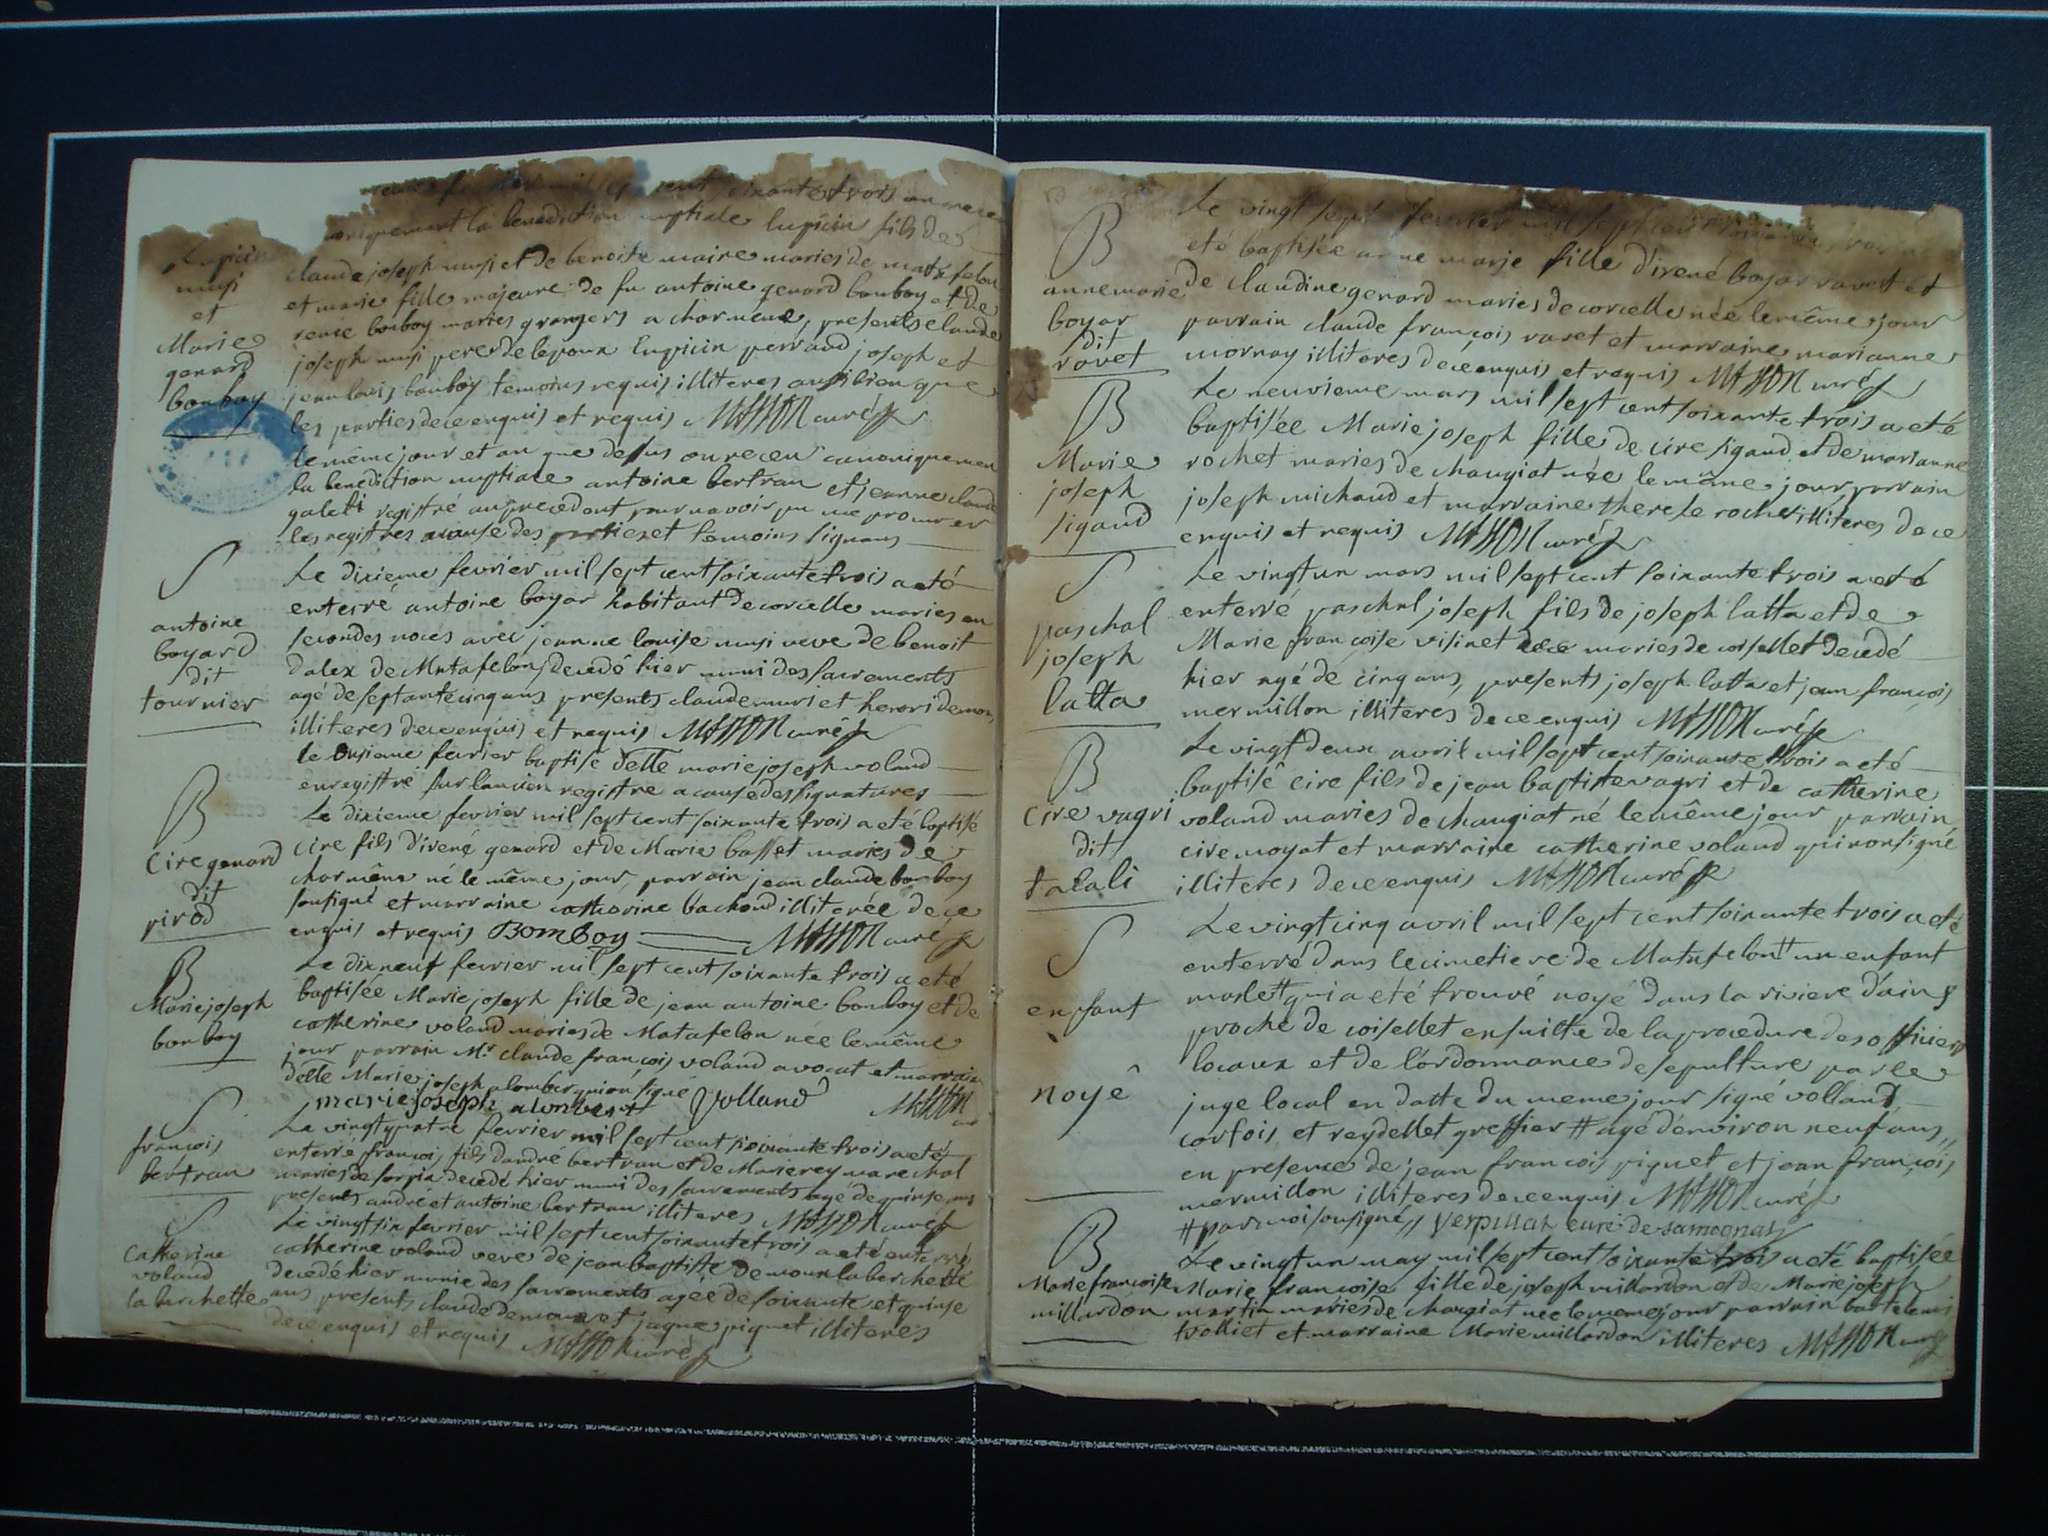 cent soixante trois on receu
la benediction nuptiale lupicin fils de
Lupicin
musi
et
Marie
genard
bonboy
claude joseph musi et de benoite maire maries de matafelon
et marie fille majeure de fu antoine genard bonboy et de
renée bonboy maries grangers a charmene, presents claude
joseph musi pere de lepoux lupicin perraud joseph et
jean louis bonboy temoins requis illiteres aussi bien que
les parties de ce enquis et requis MASSON curé
le même jour et an que dessus on receu canoniquement
la benediction nuptiale antoine bertran et jeanne claude
galeti registré au precedant pour navoir pu me procurer
les registres a cause des parties et temoins signans
S
antoine
boyard
dit
tournier
Le dixième fevrier mil sept cent soixante trois a eté
enterré antoine boyar habitant de corcelle maries en
secondes noces avec jeanne louise musi veve de benoit
dalex de Matafelon decedé hier muni des sacrements
agé de septante cinq ans presents claude muri et henri demon,
illiteres de ce enquis et requis MASSON curé
le onsieme fevrier baptisé delle marie joseph voland
enregistré sur lancien registre a cause des signatures
B
Cire genard
dit
pirod
Le dixieme fevrier mil sept cent soixante trois a eté baptisé
cire fils d'irené genard et de Marie basset maries de
charmêne né le même jour, parrain jean claude bonboy
sousigné et marraine catherine bachod illiterée de ce
enquis et requis Bomboy MASSON curé
B
Marie joseph
bonboy
Le dixneuf fevrier mil sept cent soixante trois a eté
baptisée Marie joseph fille de jean antoine bonboy et de
catherine voland maries de Matafelon née le même
jour parrain Mr claude françois voland avocat et marraine
delle Marie joseph alombert qui on signé
marie joseph alonbert Volland MASSON
curé
S
françois
bertran
Le vingtquatre fevrier mil sept cent soixante trois a eté
enterré françois fils dandré bertran et de Marie rey marechal
maries de sorpia decedé hier muni des sacrements agé de quinse ans
presents andré et antoine bertran illiteres MASSON curé
S
Catherine
voland
la berchette
Le vingtsix fevrier mil sept cent soixante trois a eté enterré
catherine voland veve de jean baptiste demoux la berchette
decedé hier munie des sacrements agée de soixante et quinse
ans presents claude demoux et jaque piquet illiteres
de ce enquis et requis MASSON curé
B
anne marie
boyar
dit
ravet
Le vingt sept fevrier mil sept cent soixante
eté baptisée anne marie fille d'irené boyar ravet et
de claudine genard maries de corcelle née le même jour
parrain claude françois ravet et marraine marianne
mornay illiteres de ce enquis et requis MASSON curé
B
Marie
joseph
sigaud
Le neuvieme mars mil sept cent soixante trois a eté
baptisée Marie joseph fille de cire sigaud et de marianne
rochet maries de chaugiat née le même jour parrain
joseph michaud et marraine therese rochet illiteres de ce
enquis et requis MASSON curé
S
paschal
joseph
latta
Le vingt un mars mil sept cent soixante trois a eté
enterré paschal joseph fils de joseph latta et de
Marie françoise visinet maries de coisellet decedé
hier agé de cinq ans, presents joseph latta et jean françois
mermillon illiteres de ce enquis MASSON curé
B
Cire vagri
dit
talali
Le vingt deux avril mil sept cent soixante trois a eté
baptisé cire fils de jean baptiste vagri et de catherine
voland maries de chaugiat né le même jour parrain
cire moyat et marraine catherine voland qui non signé
illiteres de ce enquis MASSON curé
S
enfant
noyê
Le vingtcinq avril mil sept cent soixante trois a eté
enterré dans le cimetiere de Matafelon # un enfant
masle # qui a eté trouvé noyé dans la riviere d'ain
proche de coisellet ensuitte de la procedure des officiers
locaux et de l'ordonnance de sepulture par le
juge local en datte du meme jour signé volland
corfois et reydellet greffier # agé d'environ neuf ans,,
en presence de jean françois piquet et jean françois
mermillon illiteres de ce enquis MASSON curé
# par moi sousigné,, Verpillat curé de samognat
B
Marie françoise
millardon
Le vingt un may mil sept cent soixante trois a eté baptisée
Marie françoise fille de joseph millardon et de Marie joseph
martin maries de chaugiat née le meme jour parrain bartelemi
tolliet et marraine Marie millardon illiteres MASSON curé